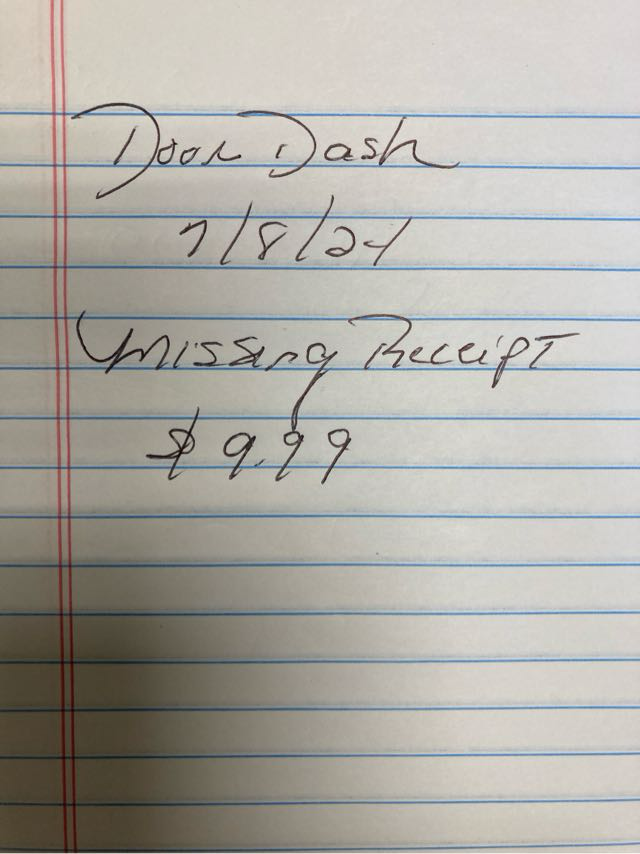 Door Dash
7/8/24
Missing Receipt
$ 9.99